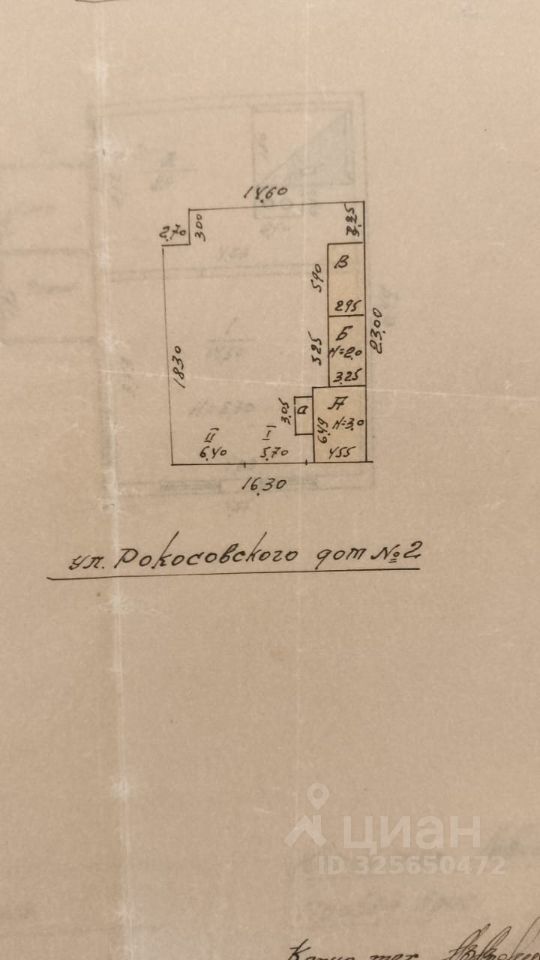 14.60
2.70
3.00
3.25
В
5.90
2.95
Б
23.00
5.25
Н=2.0
3.25
18.30
3.05
а
А
6.49
Н=3.0
II
I
6.40
5.70
4.55
16.30
ул. Рокосовского дот №2
циан
ID 325650472